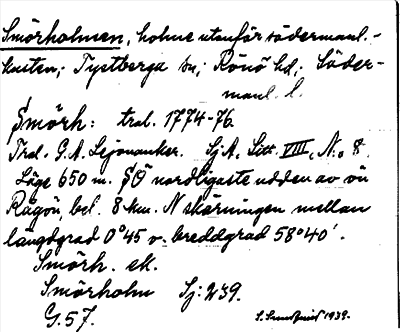 Smörholmen, holme utanför södermanl.-
kusten; Tystberga sn; Rönö hd; Söder-
manl. l.
Smörh: tral. 1774-76.
Tral. G.A. Lejonanker. Sj A, Litt. VIII, No 8.
Läge 650 m. SO nordligaste udden av ön
Rågön, bel. 8 km. N skärningen mellan
längdgrad 0°45 v. breddgrad 58°40'.
Smörh. ek.
Smörholm Sj: 239.
G. 57.
1939.